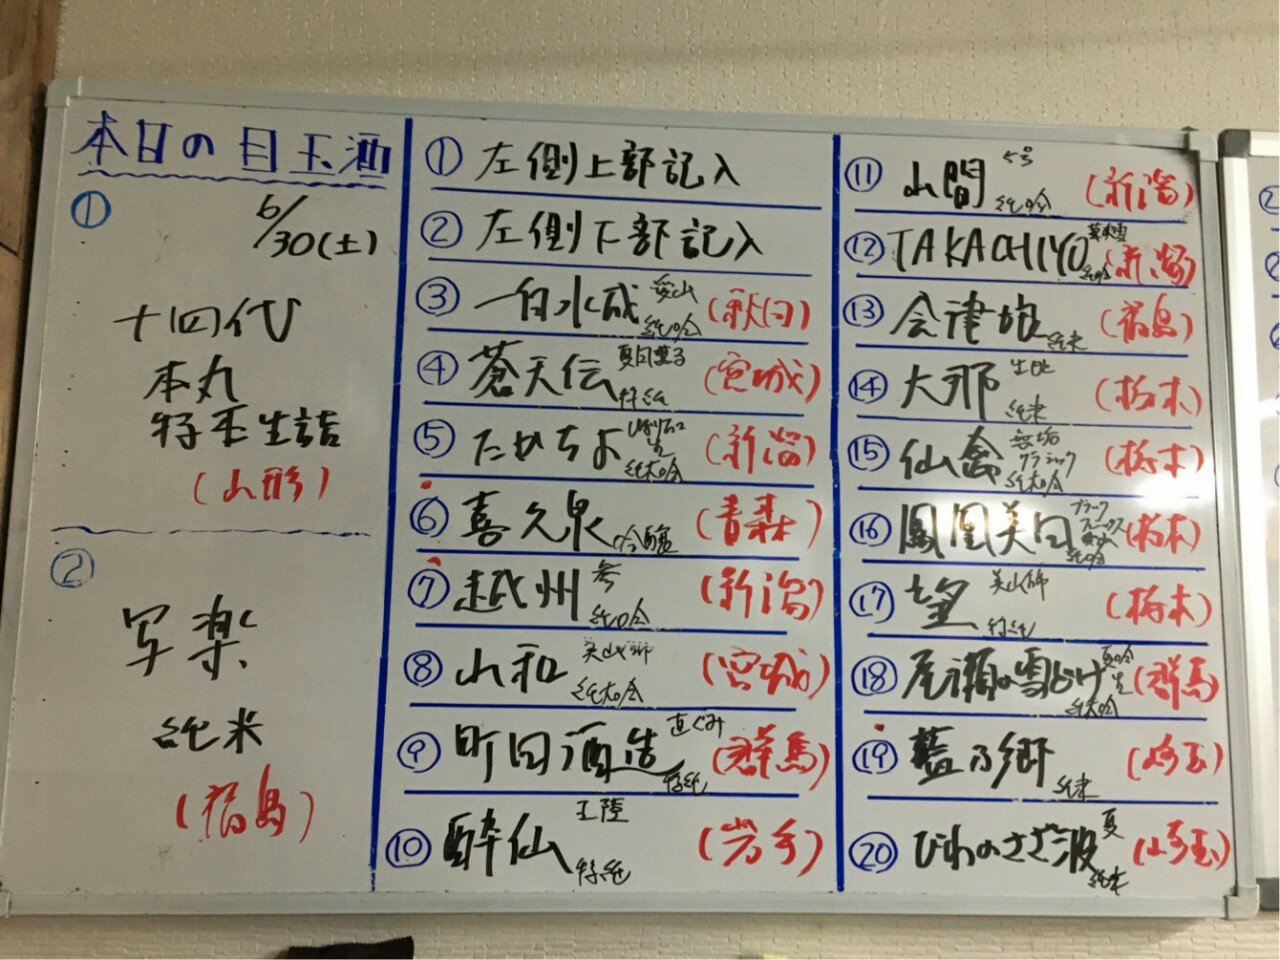 本日の目玉酒
①
6/30(土)
十四代
本丸
特本生詰
(山形)
②
写楽
純米
(福島)
① 左側上部記入
② 左側下部記入
③ 一白水成 愛山 純吟 (秋田)
④ 蒼天伝 夏 特純 (宮城)
⑤ たかちよ 純大吟 (新潟)
⑥ 喜久泉 吟醸 (青森)
⑦ 越州 参 純吟 (新潟)
⑧ 山和 美山錦 純大吟 (宮城)
⑨ 町田酒造 直ぐみ 特純 (群馬)
⑩ 酔仙 特純 (岩手)
⑪ 山間 純吟 (新潟)
⑫ TAKACHIYO 純吟 (新潟)
⑬ 会津娘 純米 (福島)
⑭ 大那 生酛 純米 (栃木)
⑮ 仙禽 無垢 クラシック 純大吟 (栃木)
⑯ 鳳凰美田 ブラック 純吟 (栃木)
⑰ 望 美山錦 特純 (栃木)
⑱ 尾瀬の雪どけ 夏吟 生 純大吟 (群馬)
⑲ 藍の郷 純米 (埼玉)
⑳ びわのさざ波 夏 純米 (埼玉)